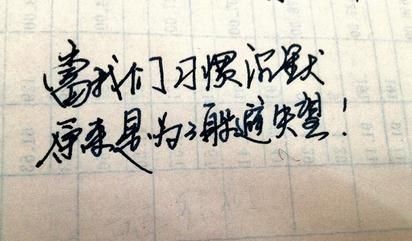 當我们习惯沉默
原来是为了躲避失望!